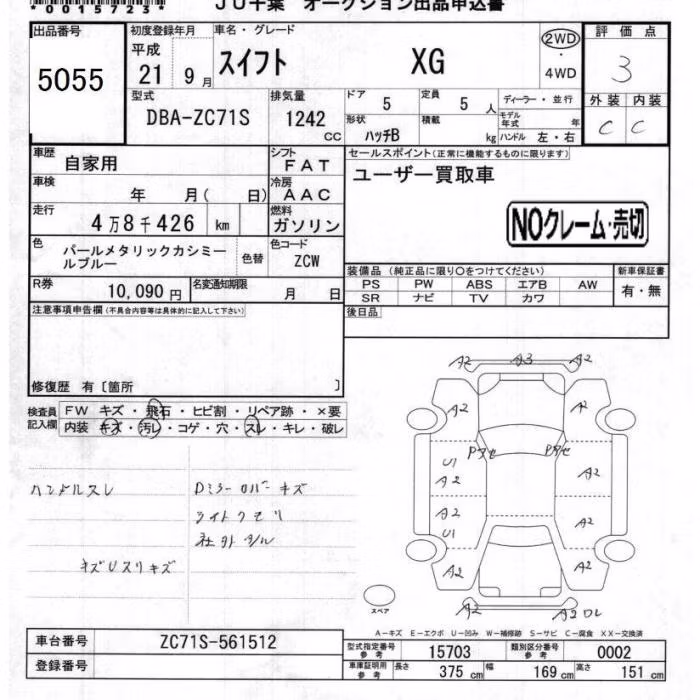 *0015723*
JU千葉 オークション出品申込書
出品番号
5055
初度登録年月
平成
21 9月
車名・グレード
スイフト XG
2WD
・
4WD
評価点
3
型式
DBA-ZC71S
排気量
1242
CC
ドア
5
定員
5人
ディーラー・並行
形状
ハッチB
積載
kg
モデル年式
年
ハンドル 左・右
外装 内装
C C
車歴
自家用
シフト
FAT
車検
年 月( 日)
冷房
AAC
走行
4万8千426 km
燃料
ガソリン
色
パールメタリックカシミールブルー
色替
色コード
ZCW
R券
10,090円
名変通知期限
月 日
セールスポイント(正常に機能するものに限ります)
ユーザー買取車
NOクレーム・売切
装備品(純正品に限り○をつけてください)
新車保証書
PS PW ABS エアB AW
SR ナビ TV カワ
有・無
後日品
注意事項申告欄(不具合内容等は具体的に記入して下さい)
修復歴 有〔箇所 〕
検査員
記入欄
FW キズ・飛石・ヒビ割・リペア跡・×要
内装 キズ・汚レ・コゲ・穴・スレ・キレ・破レ
ハンドルスレ
Dミラーカバーキズ
ライトクモリ
社外
キズUスリキズ
A2 A3 A2
A2 A2
Pアセ Pアセ
U1
A2 A2
A2 A2
U1
A2 A2
A2 A2
スペア
A-キズ E-エクボ U-凹み W-補修跡 S-サビ C-腐食 XX-交換済
車台番号
ZC71S-561512
登録番号
型式指定番号
参考
15703
類別区分番号
参考
0002
車庫証明用
参考
長さ
375 cm
幅
169 cm
高さ
151 cm